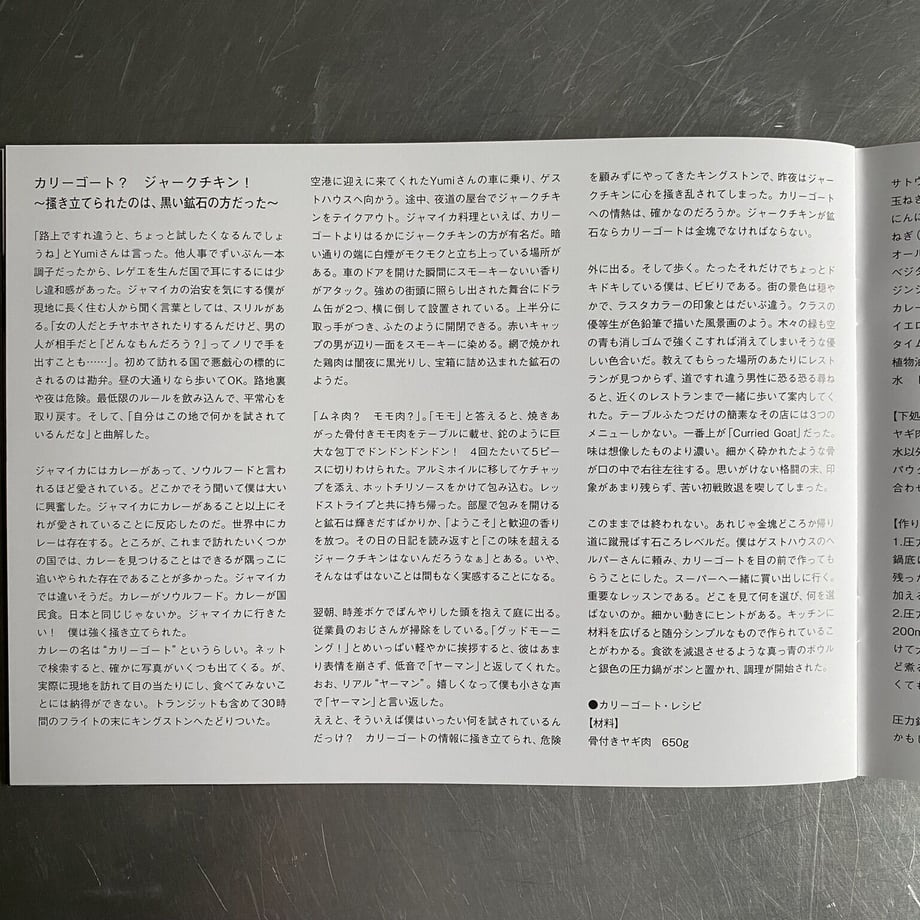 カリーゴート？　ジャークチキン！
〜掻き立てられたのは、黒い鉱石の方だった〜
「路上ですれ違うと、ちょっと試したくなるんでしょ
うね」とYumiさんは言った。他人事でずいぶん一本
調子だったから、レゲエを生んだ国で耳にするには少
し違和感があった。ジャマイカの治安を気にする僕が
現地に長く住む人から聞く言葉としては、スリルがあ
る。「女の人だとチヤホヤされたりするんだけど、男の
人が相手だと『どんなもんだろう？』ってノリで手を
出すことも……」。初めて訪れる国で悪戯心の標的に
されるのは勘弁。昼の大通りなら歩いてOK。路地裏
や夜は危険。最低限のルールを飲み込んで、平常心を
取り戻す。そして、「自分はこの地で何かを試されて
いるんだな」と曲解した。
ジャマイカにはカレーがあって、ソウルフードと言わ
れるほど愛されている。どこかでそう聞いて僕は大い
に興奮した。ジャマイカにカレーがあること以上にそ
れが愛されていることに反応したのだ。世界中にカ
レーは存在する。ところが、これまで訪れたいくつか
の国では、カレーを見つけることはできるが隅っこに
追いやられた存在であることが多かった。ジャマイカ
では違いそうだ。カレーがソウルフード。カレーが国
民食。日本と同じじゃないか。ジャマイカに行きた
い！　僕は強く掻き立てられた。
カレーの名は“カリーゴート”というらしい。ネット
で検索すると、確かに写真がいくつも出てくる。が、
実際に現地を訪れて目の当たりにし、食べてみないこ
とには納得ができない。トランジットも含めて30時
間のフライトの末にキングストンへたどりついた。
空港に迎えに来てくれたYumiさんの車に乗り、ゲス
トハウスへ向かう。途中、夜道の屋台でジャークチキ
ンをテイクアウト。ジャマイカ料理といえば、カリー
ゴートよりはるかにジャークチキンの方が有名だ。暗
い通りの端に白煙がモクモクと立ち上っている場所が
ある。車のドアを開けた瞬間にスモーキーないい香り
がアタック。強めの街頭に照らし出された舞台にドラ
ム缶が2つ、横に倒して設置されている。上半分に
取っ手がつき、ふたのように開閉できる。赤いキャッ
プの男が辺り一面をスモーキーに染める。網で焼かれ
た鶏肉は闇夜に黒光りし、宝箱に詰め込まれた鉱石の
ようだ。
「ムネ肉？　モモ肉？」。「モモ」と答えると、焼きあ
がった骨付きモモ肉をテーブルに載せ、鉈のように巨
大な包丁でドンドンドンドン！　4回たたいて5ピー
スに切りわけられた。アルミホイルに移してケチャッ
プを添え、ホットチリソースをかけて包み込む。レッ
ドストライプと共に持ち帰った。部屋で包みを開ける
と鉱石は輝きだすばかりか、「ようこそ」と歓迎の香り
を放つ。その日の日記を読み返すと「この味を超える
ジャークチキンはないんだろうなぁ」とある。いや、
そんなはずはないことは間もなく実感することになる。
翌朝、時差ボケでぼんやりした頭を抱えて庭に出る。
従業員のおじさんが掃除をしている。「グッドモーニ
ング！」とめいっぱい軽やかに挨拶すると、彼はあま
り表情を崩さず、低音で「ヤーマン」と返してくれた。
おお、リアル“ヤーマン”。嬉しくなって僕も小さな声
で「ヤーマン」と言い返した。
ええと、そういえば僕はいったい何を試されているん
だっけ？　カリーゴートの情報に掻き立てられ、危険
を顧みずにやってきたキングストンで、昨夜はジャー
クチキンに心を掻き乱されてしまった。カリーゴート
への情熱は、確かなのだろうか。ジャークチキンが鉱
石ならカリーゴートは金塊でなければならない。
外に出る。そして歩く。たったそれだけでちょっとド
キドキしている僕は、ビビりである。街の景色は穏や
かで、ラスタカラーの印象とはだいぶ違う。クラスの
優等生が色鉛筆で描いた風景画のよう。木々の緑も空
の青も消しゴムで強くこすれば消えてしまいそうな優
しい色合いだ。教えてもらった場所のあたりにレスト
ランが見つからず、道ですれ違う男性に恐る恐る尋ね
ると、近くのレストランまで一緒に歩いて案内してく
れた。テーブルふたつだけの簡素なその店には3つの
メニューしかない。一番上が「Curried Goat」だった。
味は想像したものより濃い。細かく砕かれたような骨
が口の中で右往左往する。思いがけない格闘の末、印
象があまり残らず、苦い初戦敗退を喫してしまった。
このままでは終われない。あれじゃ金塊どころか帰り
道に蹴飛ばす石ころレベルだ。僕はゲストハウスのヘ
ルパーさんに頼み、カリーゴートを目の前で作っても
らうことにした。スーパーへ一緒に買い出しに行く。
重要なレッスンである。どこを見て何を選び、何を選
ばないのか。細かい動きにヒントがある。キッチンに
材料を広げると随分シンプルなもので作られているこ
とがわかる。食欲を減退させるような真っ青のボウル
と銀色の圧力鍋がポンと置かれ、調理が開始された。
●カリーゴート・レシピ
【材料】
骨付きヤギ肉　650g
サトウ
玉ねぎ
にんに
ねぎ（
オール
ベジタ
ジンジ
カレイ
イエロ
タイム
植物油
水
【下処
ヤギ肉
水以外
パウダ
合わせ
【作り
1.圧力
鍋底に
残った
加える
2.圧力
200m
けてフ
ど煮る
くても
圧力鍋
かもし